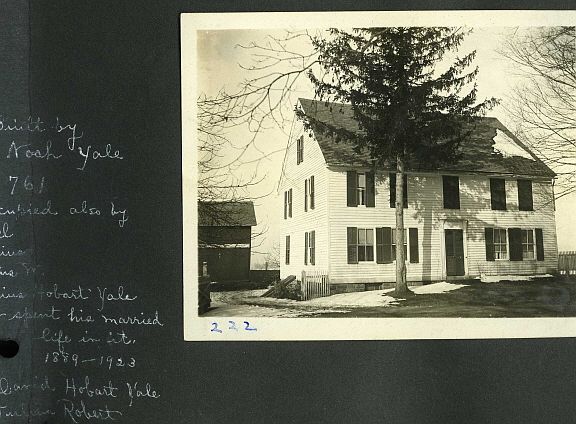 Built by
Noah Yale
761
cupied also by
el
ius W.
ius Hobart Yale
spent his married
life in it.
1889-1923
David Hobart Yale
Robert
222